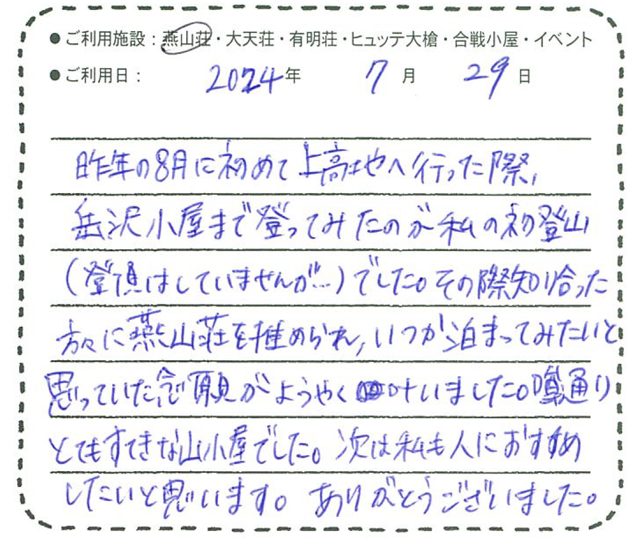 ●ご利用施設：燕山荘・大天荘・有明荘・ヒュッテ大槍・合戦小屋・イベント
●ご利用日： 2024年 7月 29日
昨年の8月に初めて上高地へ行った際、
岳沢小屋まで登ってみたのが私の初登山
（登頂はしていませんが…）でした。その際知り合った
方々に燕山荘を推められ、いつか泊まってみたいと
思っていた念願がようやく叶いました。噂通り
とてもすてきな山小屋でした。次は私も人におすすめ
したいと思います。ありがとうございました。